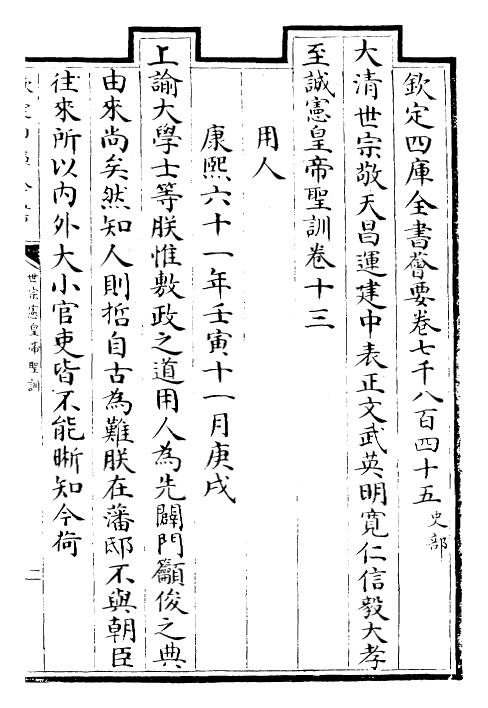 欽定四庫全書薈要卷七千八百四十五史部
大清世宗敬天昌運建中表正文武英明寬仁信毅大孝
至誠憲皇帝聖訓卷十三
用人
康熙六十一年壬寅十一月庚戌
上諭大學士等朕惟敷政之道用人為先闢門籲俊之典
由來尚矣然知人則哲自古為難朕在藩邸不與朝臣
往來所以內外大小官吏皆不能晰知今荷
世宗憲皇帝聖訓